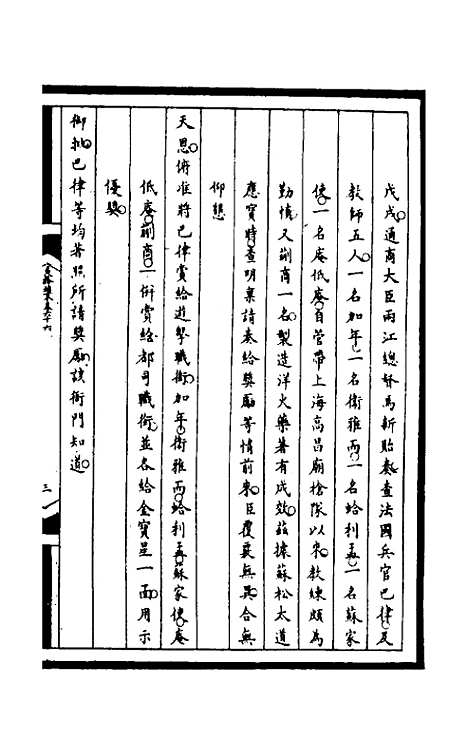 戊戌通商大臣兩江總督馬新貽奏查法國兵官巴律及
教師五人一名加年一名衛雅而一名蛤利孟一名蘇家
傻一名庵低庵自管帶上海高昌廟槍隊以來教練頗為
勤慎又副商一名製造洋火藥著有成效茲據蘇松太道
應寶時查明稟請奏給獎勵等情前來臣覆覈無異合無
仰懇
天恩俯准將巴律賞給遊擊職銜加年衛雅而蛤利孟蘇家傻庵
低庵副商一併賞給都司職銜並各給金寶星一面用示
優獎
御批巴律等均著照所請獎勵該衙門知道
三